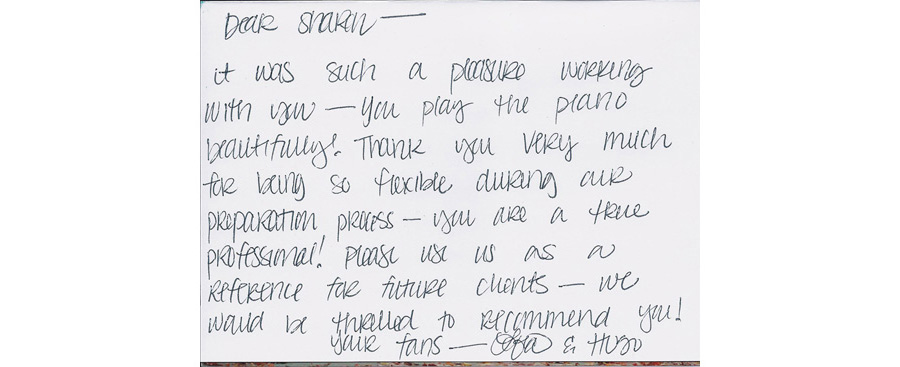 Dear Sharin —
it was such a pleasure working
with you — you play the piano
beautifully! Thank you very much
for being so flexible during our
preparation process — you are a true
professional! Please use us as a
reference for future clients — we
would be thrilled to recommend you!
your fans — & Hugo